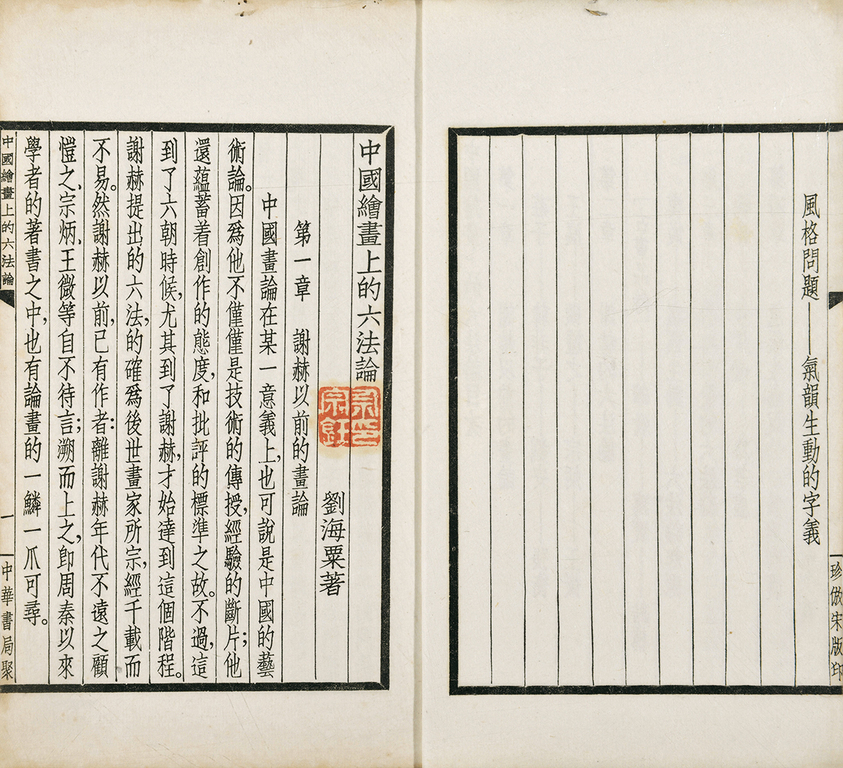 風格問題——氣韻生動的字義
珍倣宋版印
中國繪畫上的六法論
劉海粟著
第一章 謝赫以前的畫論
中國畫論在某一意義上，也可說是中國的藝
術論。因爲他不僅僅是技術的傳授，經驗的斷片；他
還蘊蓄着創作的態度，和批評的標準之故。不過，這
到了六朝時候，尤其到了謝赫，才始達到這個階程。
謝赫提出的六法，的確爲後世畫家所宗，經千載而
不易。然謝赫以前，已有作者：離謝赫年代不遠之顧
愷之、宗炳、王微等自不待言；溯而上之，卽周秦以來
學者的著書之中，也有論畫的一鱗一爪可尋。
中國繪畫上的六法論
一
中華書局聚